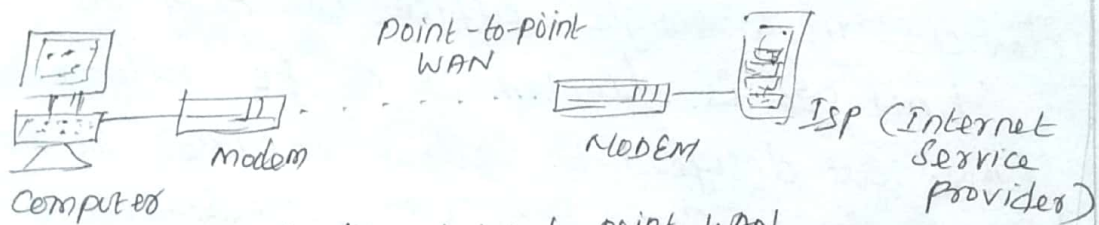 Point-to-point
WAN
Modem
MODEM
ISP (Internet
Service
Provider)
Computer
point WAN